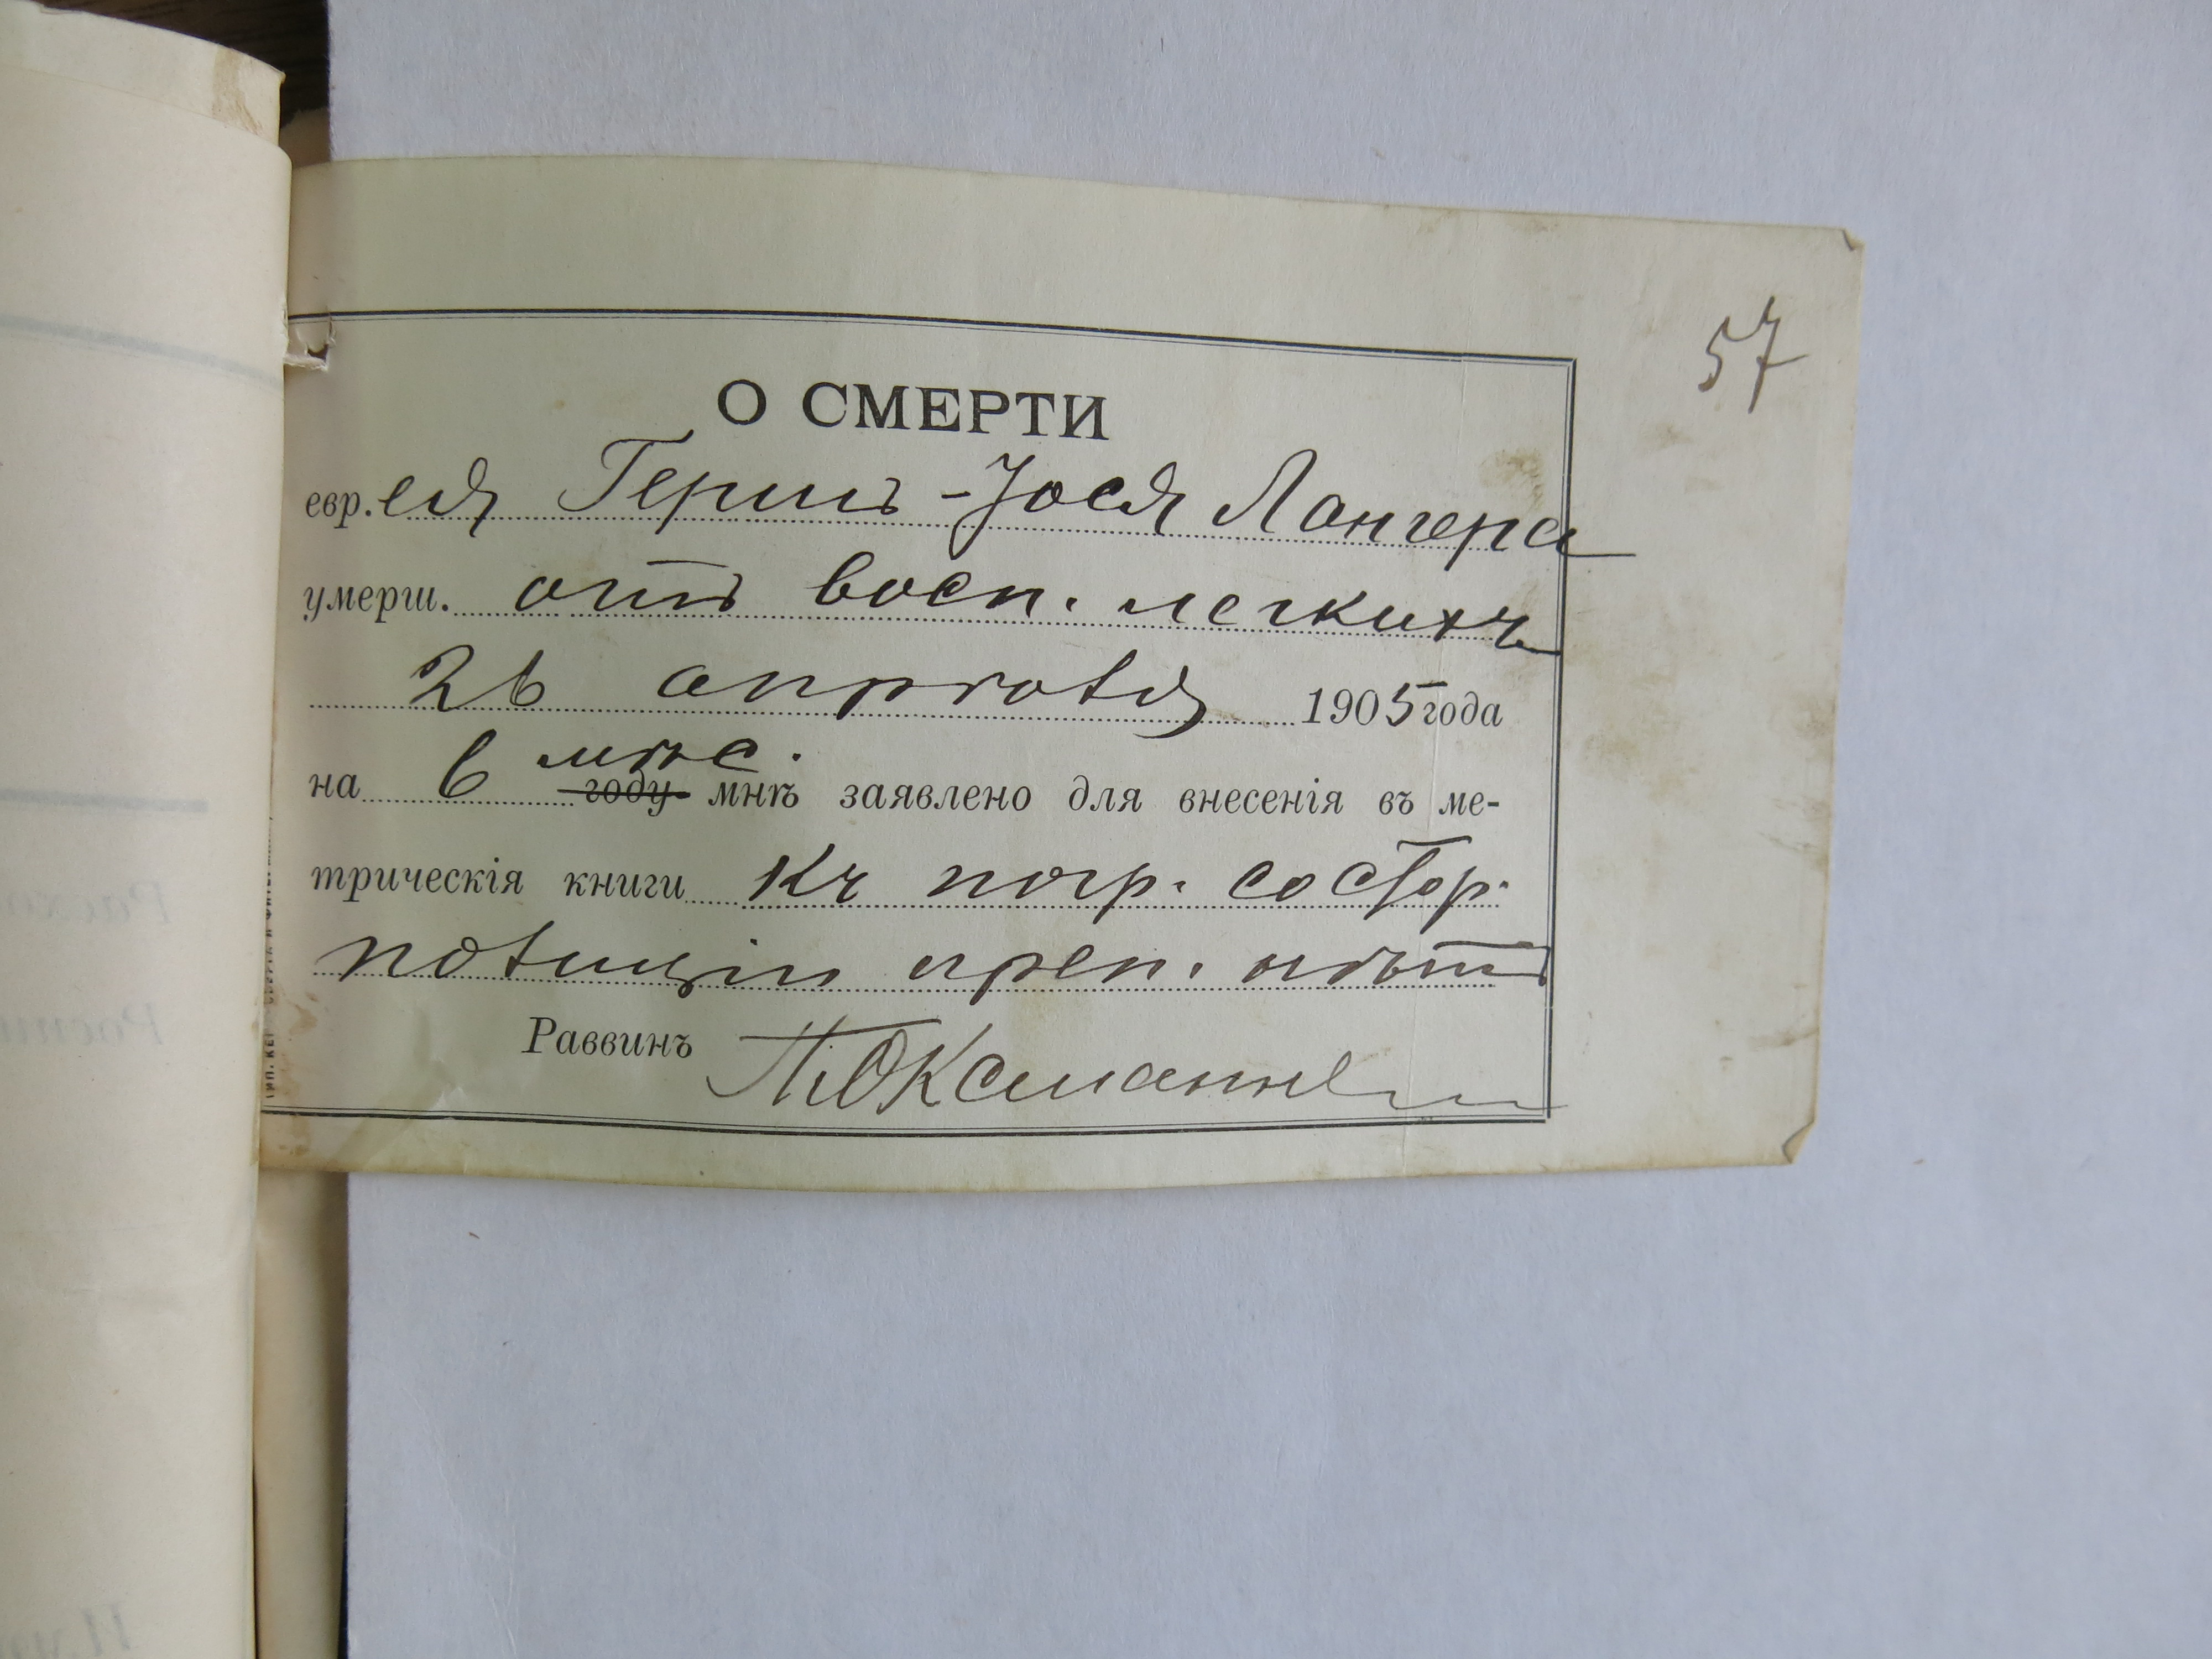 57
О СМЕРТИ
евр.ея Герш-Іося Лангера
умерш. отъ восп. легкихъ
26 апрѣля 1905 года
на 6 мѣс.
году мнѣ заявлено для внесенія въ ме-
трическія книги къ погр. со стор.
полиціи преп. нѣтъ
Раввинъ